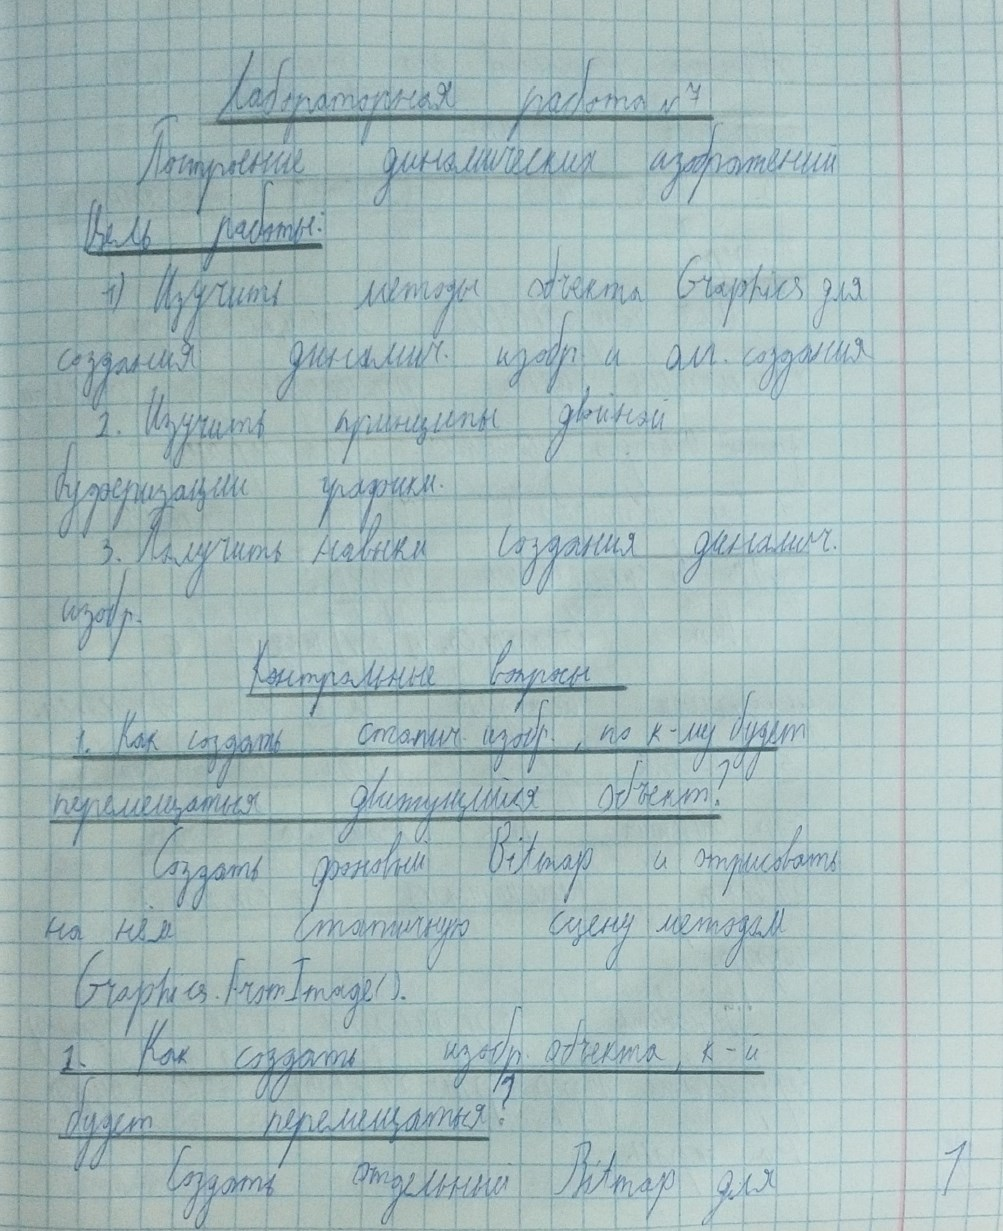 Лабораторная работа №7
Построение динамических изображений
Цель работы:
1) Изучить методы объекта Graphics для
создания динамич. изобр. и ал. создания
2. Изучить принципы двойной
буферизации графики.
3. Получить навыки создания динамич.
изобр.
Контрольные вопросы
1. Как создать статич. изобр., по к-му будет
перемещаться движущийся объект?
Создать фоновый Bitmap и отрисовать
на нём статичную сцену методом
Graphics.FromImage().
2. Как создать изобр. объекта, к-й
будет перемещаться?
Создать отдельный Bitmap для
1